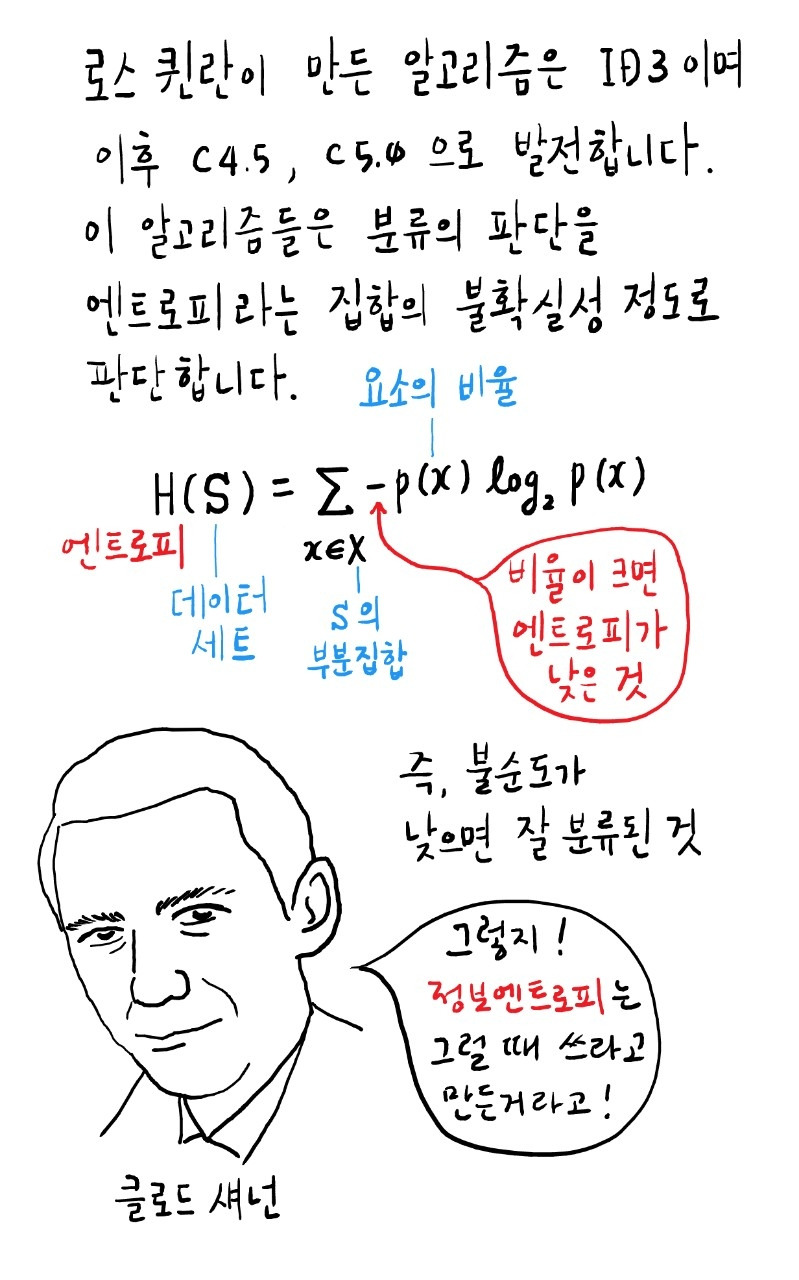 로스 퀸란이 만든 알고리즘은 ID3 이며
이후 C4.5, C5.0 으로 발전합니다.
이 알고리즘들은 분류의 판단을
엔트로피라는 집합의 불확실성 정도로
판단합니다.
요소의 비율
H(S) = ∑ -p(x) log₂ p(x)
x∈X
엔트로피
데이터
세트
S의
부분집합
비율이 크면
엔트로피가
낮은 것
즉, 불순도가
낮으면 잘 분류된 것
그렇지!
정보엔트로피는
그럴 때 쓰라고
만든거라고!
클로드 섀넌